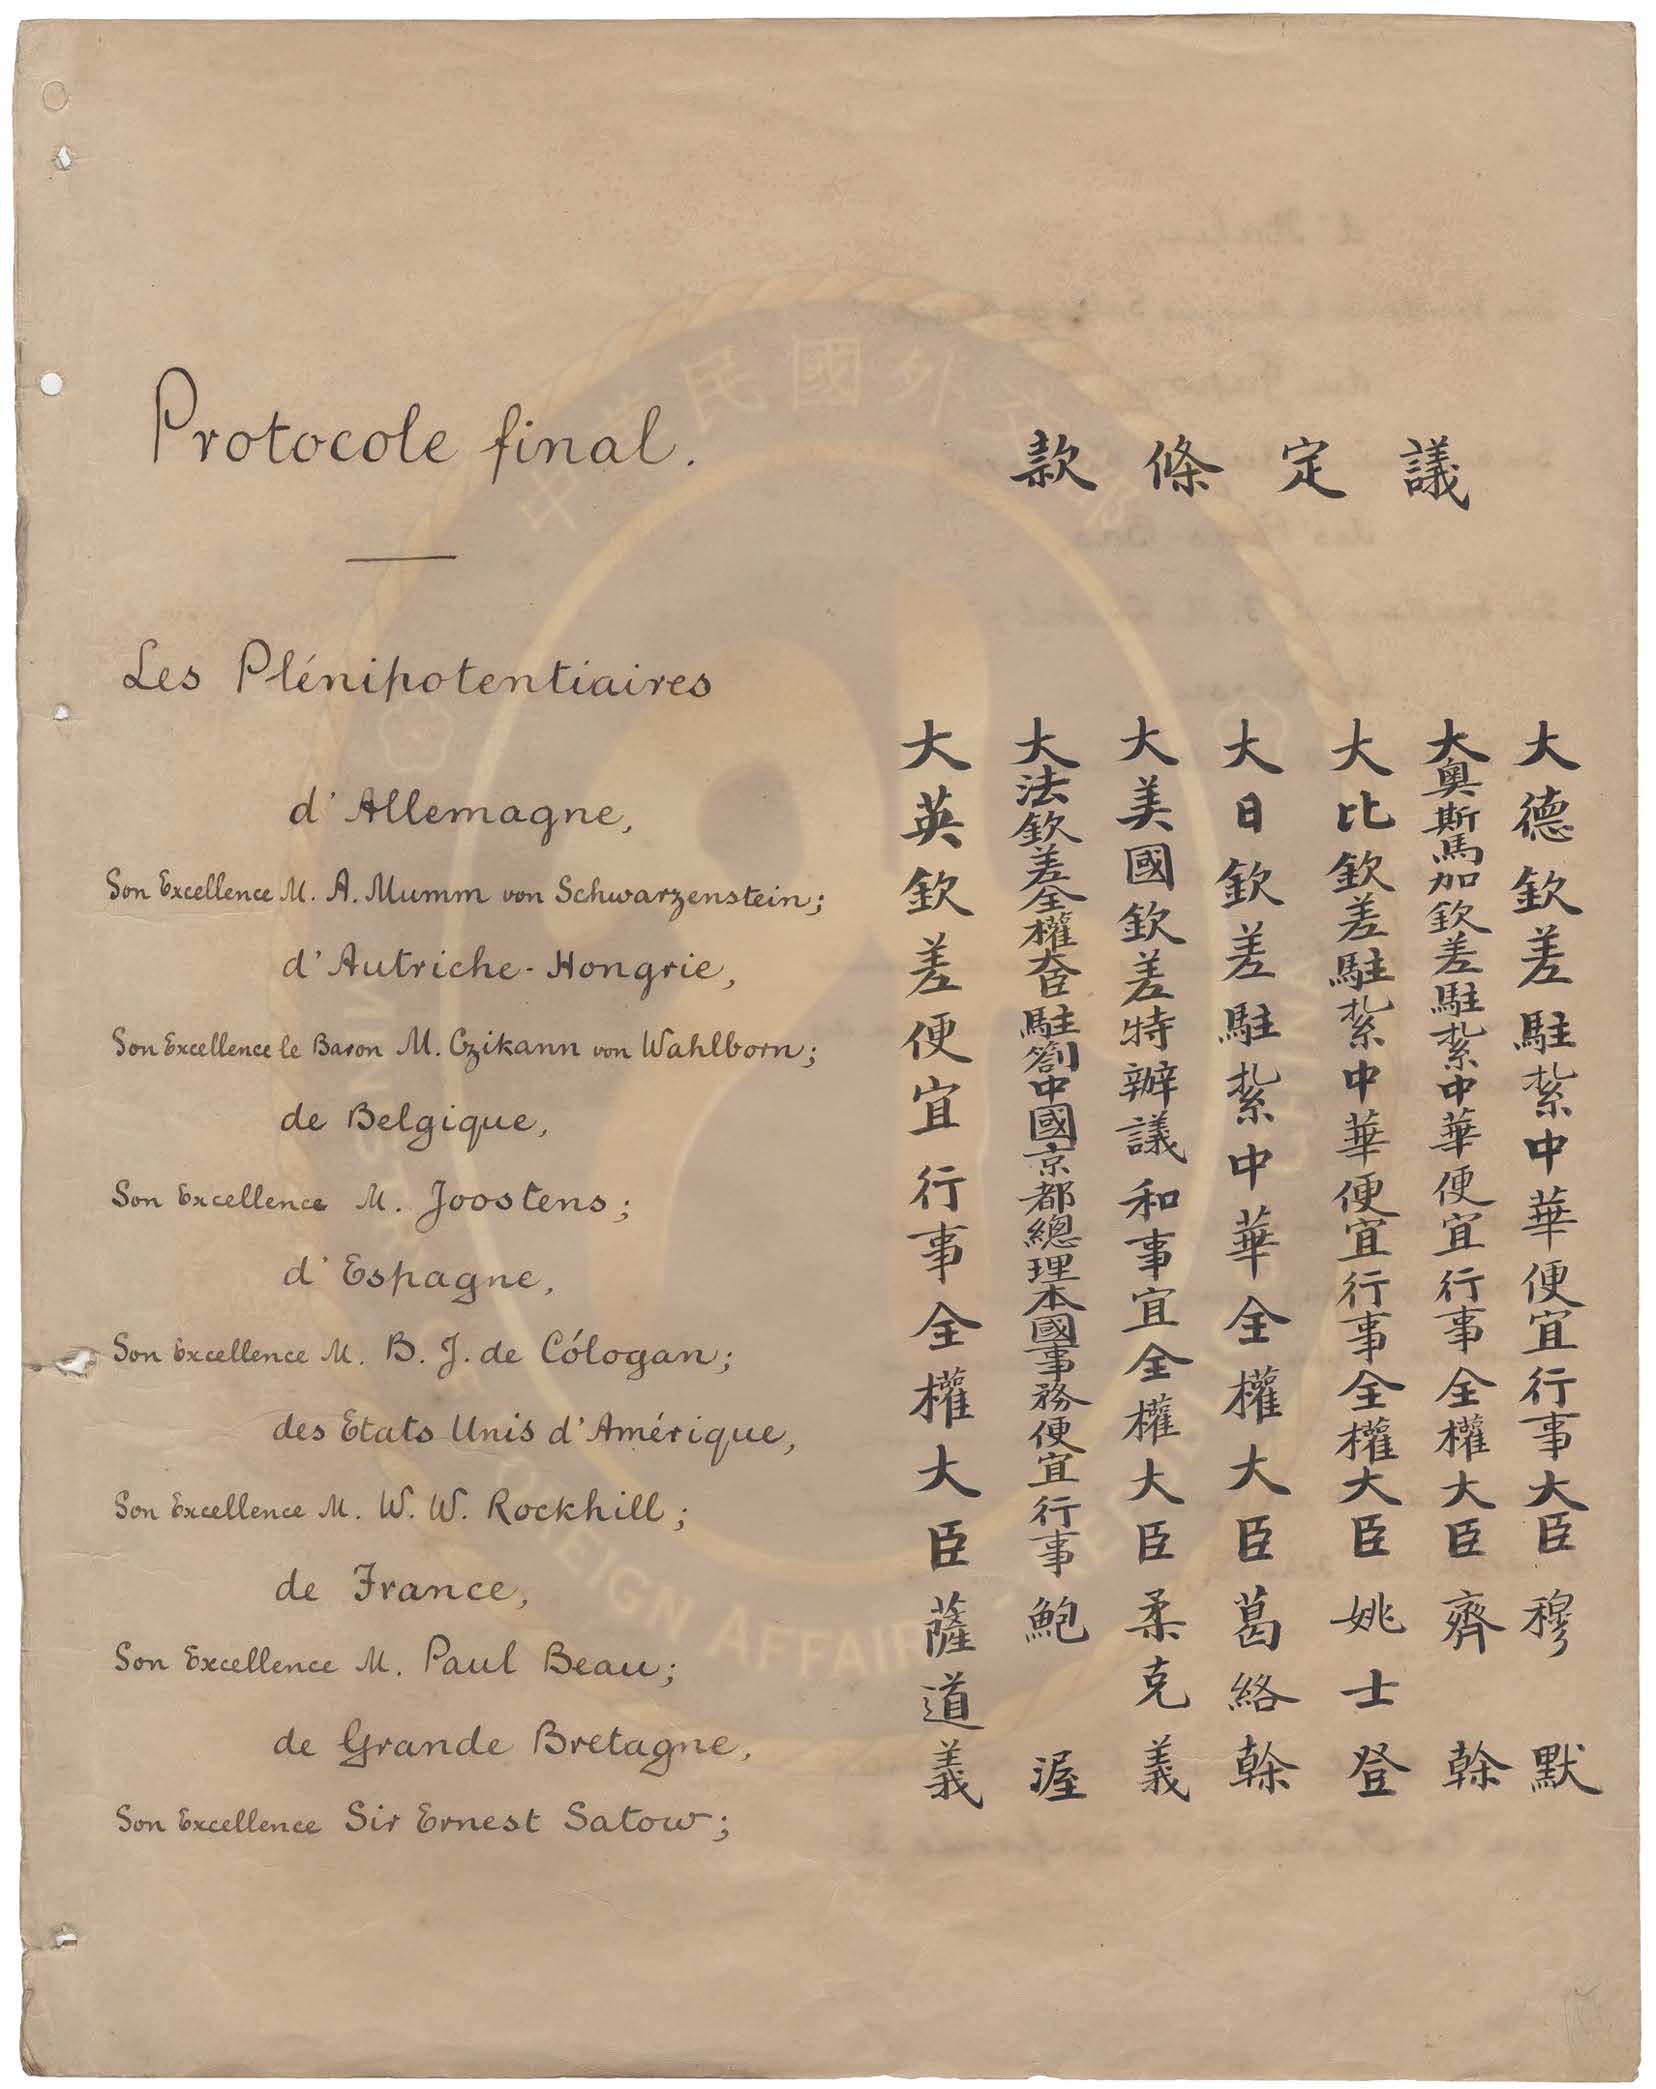 Protocole final.
Les Plénipotentiaires
d'Allemagne,
Son Excellence M. A. Mumm von Schwarzenstein;
d'Autriche-Hongrie,
Son Excellence le Baron M. Czikann von Wahlborn;
de Belgique,
Son Excellence M. Joostens;
d'Espagne,
Son Excellence M. B. J. de Cólogan;
des Etats Unis d'Amérique,
Son Excellence M. W. W. Rockhill;
de France,
Son Excellence M. Paul Beau;
de Grande Bretagne,
Son Excellence Sir Ernest Satow;
議定條款
大德欽差駐紮中華便宜行事大臣穆默
大奧斯馬加欽差駐紮中華便宜行事全權大臣齊幹
大比欽差駐紮中華便宜行事全權大臣姚士登
大日欽差駐紮中華全權大臣葛絡幹
大美國欽差特辦議和事宜全權大臣柔克義
大法欽差全權大臣駐劄中國京都總理本國事務便宜行事鮑渥
大英欽差便宜行事全權大臣薩道義
中華民國外交部
FOREIGN AFFAIRS